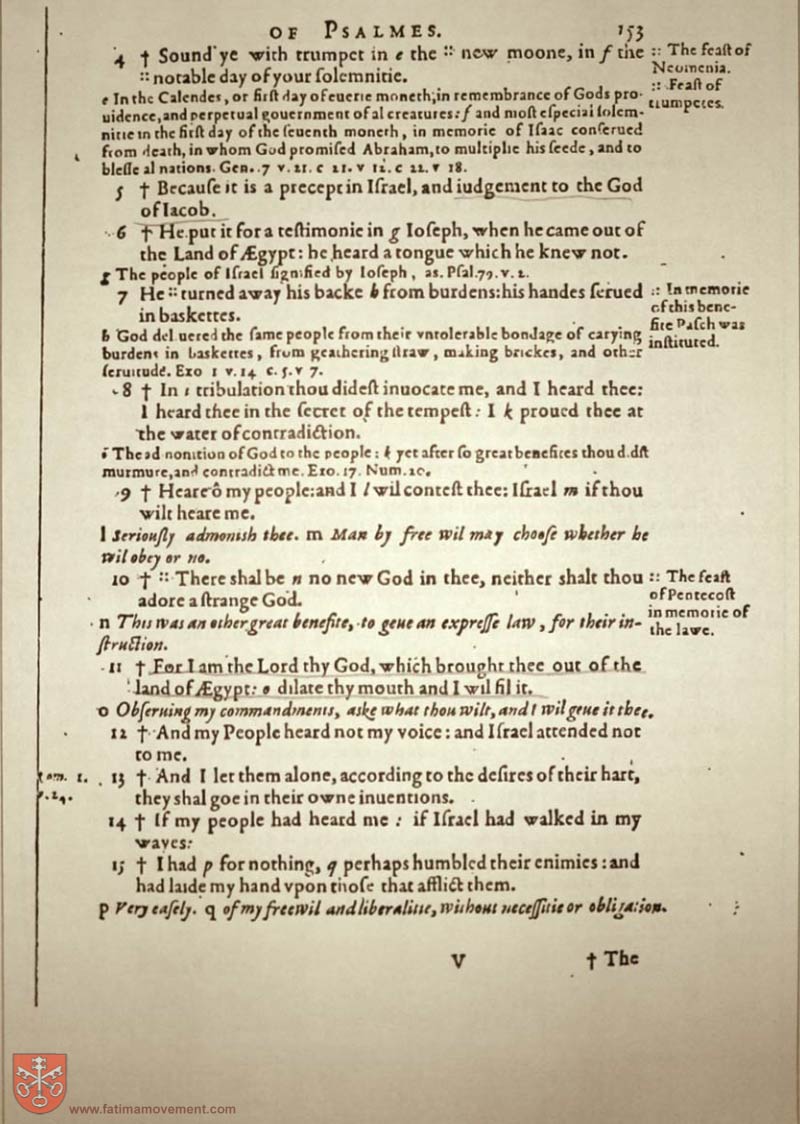 OF PSALMES. 153
4 † Sound ye with trumpet in e the :: new moone, in f the
:: notable day of your ſolemnitie.
:: The feaſt of
Neomenia.
:: Feaſt of
trumpetes.
e In the Calendes, or firſt day of euerie moneth, in remembrance of Gods pro-
uidence, and perpetual gouernment of al creatures: f and moſt eſpecial ſolem-
nitie in the firſt day of the ſeuenth moneth, in memorie of Iſaac conſerued
from death, in whom God promiſed Abraham, to multiplie his ſeede, and to
bleſſe al nations. Gen. 7 v. 21. c 21. v 12. c 22. v 18.
5 † Becauſe it is a precept in Iſrael, and iudgement to the God
of Iacob.
6 † He put it for a teſtimonie in g Ioſeph, when he came out of
the Land of Ægypt: he heard a tongue which he knew not.
g The people of Iſrael ſignified by Ioſeph, as. Pſal. 79. v. 2.
7 He :: turned away his backe h from burdens: his handes ſerued
in baskettes.
:: In memorie
of this bene-
fite Paſch was
inſtituted.
h God deliuered the ſame people from their vntolerable bondage of carying
burdens in baskettes, from geathering ſtraw, making brickes, and other
ſeruitude. Exo 1 v. 14 c. 5. v 7.
8 † In i tribulation thou dideſt inuocate me, and I heard thee:
I heard thee in the ſecret of the tempeſt: I k proued thee at
the water of contradiction.
i The admonition of God to the people: k yet after ſo great benefites thou didſt
murmure, and contradict me. Exo. 17. Num. 20.
9 † Heare ô my people: and I l wil conteſt thee: Iſrael m if thou
wilt heare me.
l Seriouſly admonish thee. m Man by free wil may chooſe whether he
wil obey or no.
10 † :: There shal be n no new God in thee, neither shalt thou
adore a ſtrange God.
:: The feaſt
of Pentecoſt
in memorie of
the lawe.
n This was an other great benefite, to geue an expreſſe law, for their in-
ſtruction.
11 † For I am the Lord thy God, which brought thee out of the
land of Ægypt: o dilate thy mouth and I wil fil it.
o Obſeruing my commandments, aske what thou wilt, and I wil geue it thee.
12 † And my People heard not my voice: and Iſrael attended not
to me.
13 † And I let them alone, according to the deſires of their hart,
they shal goe in their owne inuentions.
om. 1.
.24.
14 † If my people had heard me: if Iſrael had walked in my
wayes:
15 † I had p for nothing, q perhaps humbled their enimies: and
had laide my hand vpon thoſe that afflict them.
p Very eaſely. q of my free wil and liberalitie, without neceſſitie or obligation.
V † The
www.fatimamovement.com